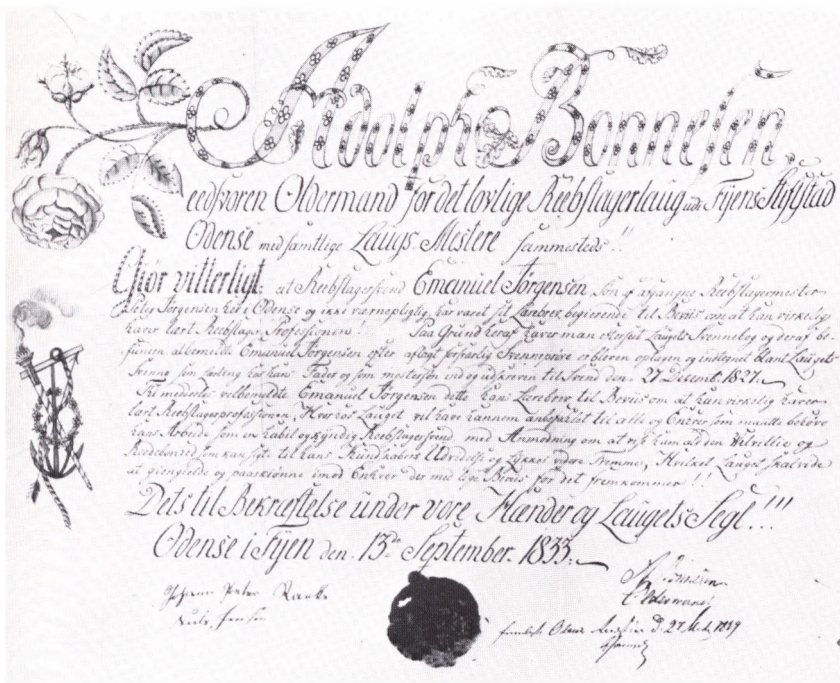 Adolph Bonnesen.
eedsvoren Oldermand for det lovlige Reebslagerlaug udi Fyens Stiftstad
Odense med samtlige Laugs-Mestere sammesteds!!
Giør vitterligt: at Reebslagersvend Emanuel Jørgensen Søn af afgangne Reebslagermester
Jørgensen her i Odense og ikke værnepligtig har været sit Lærebrev begierende til Beviis om at han virkelig
haver lært Reebslager Professionen!! Paa Grund heraf haver man Laugets Svennebog og deraf be-
funden albemeldte Emanuel Jørgensen efter aflagt forsvarlig Svenneprøve er bleven optagen og indtegnet blant Laugets
Svenne som lærling hos hans Fader og som mestersøn ind og udskreven til Svend den 27 Decemb. 1827.
Thi meddeeles velbemeldte Emanuel Jørgensen dette hans Lærebrev til Beviis om at han virkelig haver
lært Reebslagerprofessionen, Hvorhos Lauget vil have hannem anbefalet til alle og Enhver som maatte behøve
hans Arbeide som en habil og kyndig Reebslagersvend med Anmodning om at vise ham al den Velvillie og
Redebonhed som kan til hans Kundskabers Udvidelse og Lykkes videre Fremme, Hvilket Lauget skal vide
at giengielde og paaskiønne imod Enhver der med lige Beviis for det fremkommer!!!
Dets til Bekræftelse under vore Hænder og Laugets Segl!!!
Odense i Fyen den 13de September 1833.
Bonnesen
Oldermand
Johann Peter
Niels Jensen
Odense D. 27 1849